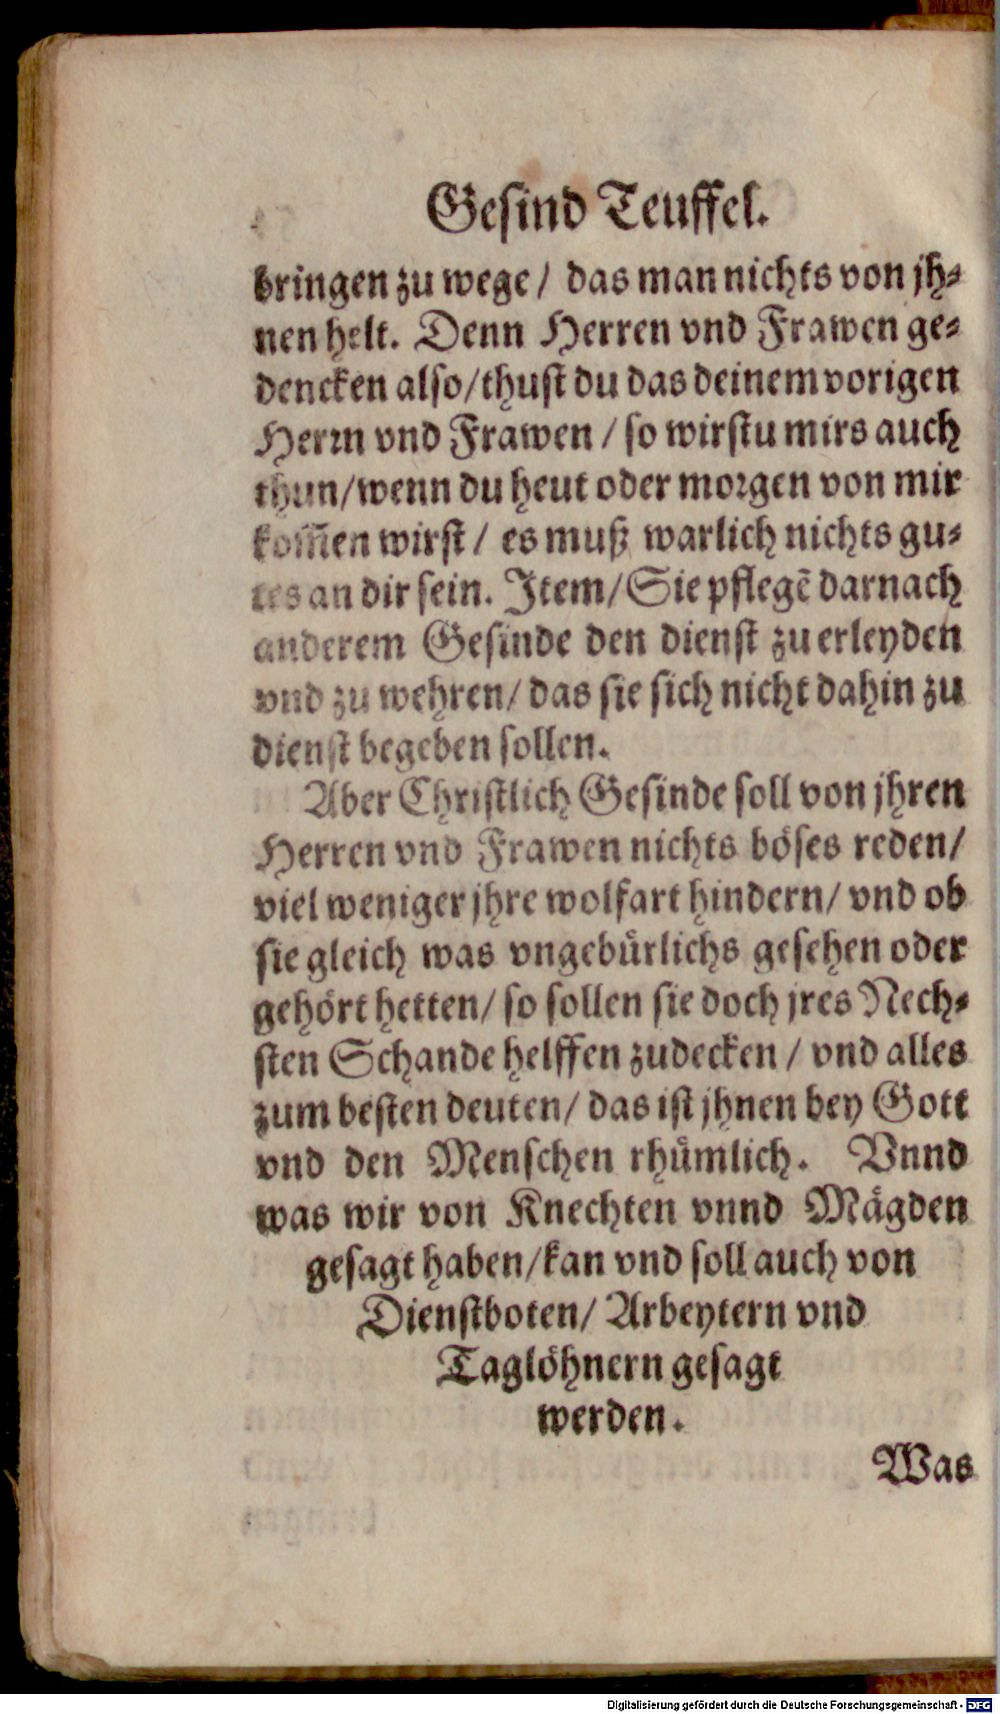 Gesind Teuffel.
bringen zu wege / das man nichts von jh⸗
nen helt. Denn Herren vnd Frawen ge⸗
dencken also/thust du das deinem vorigen
Herꝛn vnd Frawen / so wirstu mirs auch
thun/wenn du heut oder moꝛgen von mir
kom̃en wirst / es muß warlich nichts gu⸗
tes an dir sein. Item/Sie pflegẽ darnach
anderem Gesinde den dienst zu erleyden
vnd zu wehren/ das sie sich nicht dahin zu
dienst begeben sollen.
Aber Christlich Gesinde soll von jhren
Herren vnd Frawen nichts böses reden/
viel weniger jhre wolfart hindern/ vnd ob
sie gleich was vngebürlichs gesehen oder
gehört hetten/ so sollen sie doch jres Nech⸗
sten Schande helffen zudecken / vnd alles
zum besten deuten/ das ist jhnen bey Gott
vnd den Menschen rhümlich. Vnnd
was wir von Knechten vnnd Mägden
gesagt haben/kan vnd soll auch von
Dienstboten/ Arbeytern vnd
Taglöhnern gesagt
werden.
Was
Digitalisierung gefördert durch die Deutsche Forschungsgemeinschaft - DFG